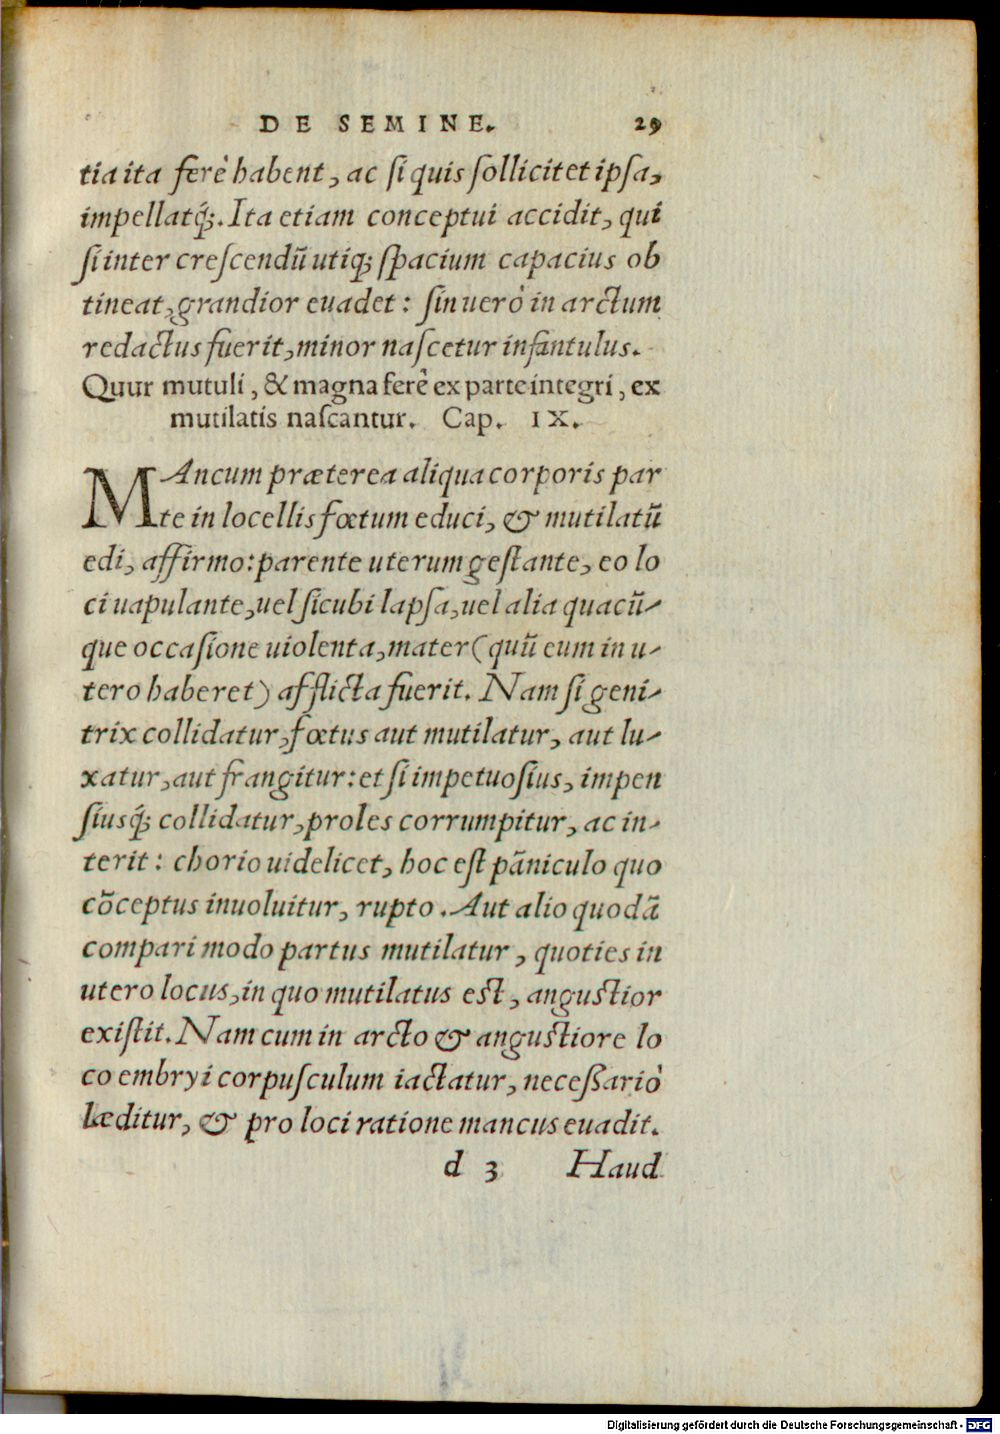 DE SEMINE. 29
tia ita ferè habent, ac ſi quis ſollicitet ipſa,
impellatq́;. Ita etiam conceptui accidit, qui
ſi inter creſcendũ utiq; ſpacium capacius ob
tineat, grandior euadet: ſin uerò in arctum
redactus fuerit, minor naſcetur infantulus.
Quur mutuli, & magna ferè ex parte integri, ex
mutilatis naſcantur. Cap. IX.
MAncum præterea aliqua corporis par
te in locellis fœtum educi, & mutilatũ
edi, affirmo: parente uterum geſtante, eo lo
ci uapulante, uel ſicubi lapſa, uel alia quacũ-
que occaſione uiolenta, mater (quũ eum in u-
tero haberet) afflicta fuerit. Nam ſi geni-
trix collidatur, fœtus aut mutilatur, aut lu-
xatur, aut frangitur: et ſi impetuoſius, impen
ſiusq́; collidatur, proles corrumpitur, ac in-
terit: chorio uidelicet, hoc eſt pãniculo quo
cõceptus inuoluitur, rupto. Aut alio quodã
compari modo partus mutilatur, quoties in
utero locus, in quo mutilatus eſt, anguſtior
exiſtit. Nam cum in arcto & anguſtiore lo
co embryi corpuſculum iactatur, neceßariò
læditur, & pro loci ratione mancus euadit.
d 3 Haud
Digitalisierung gefördert durch die Deutsche Forschungsgemeinschaft - DFG